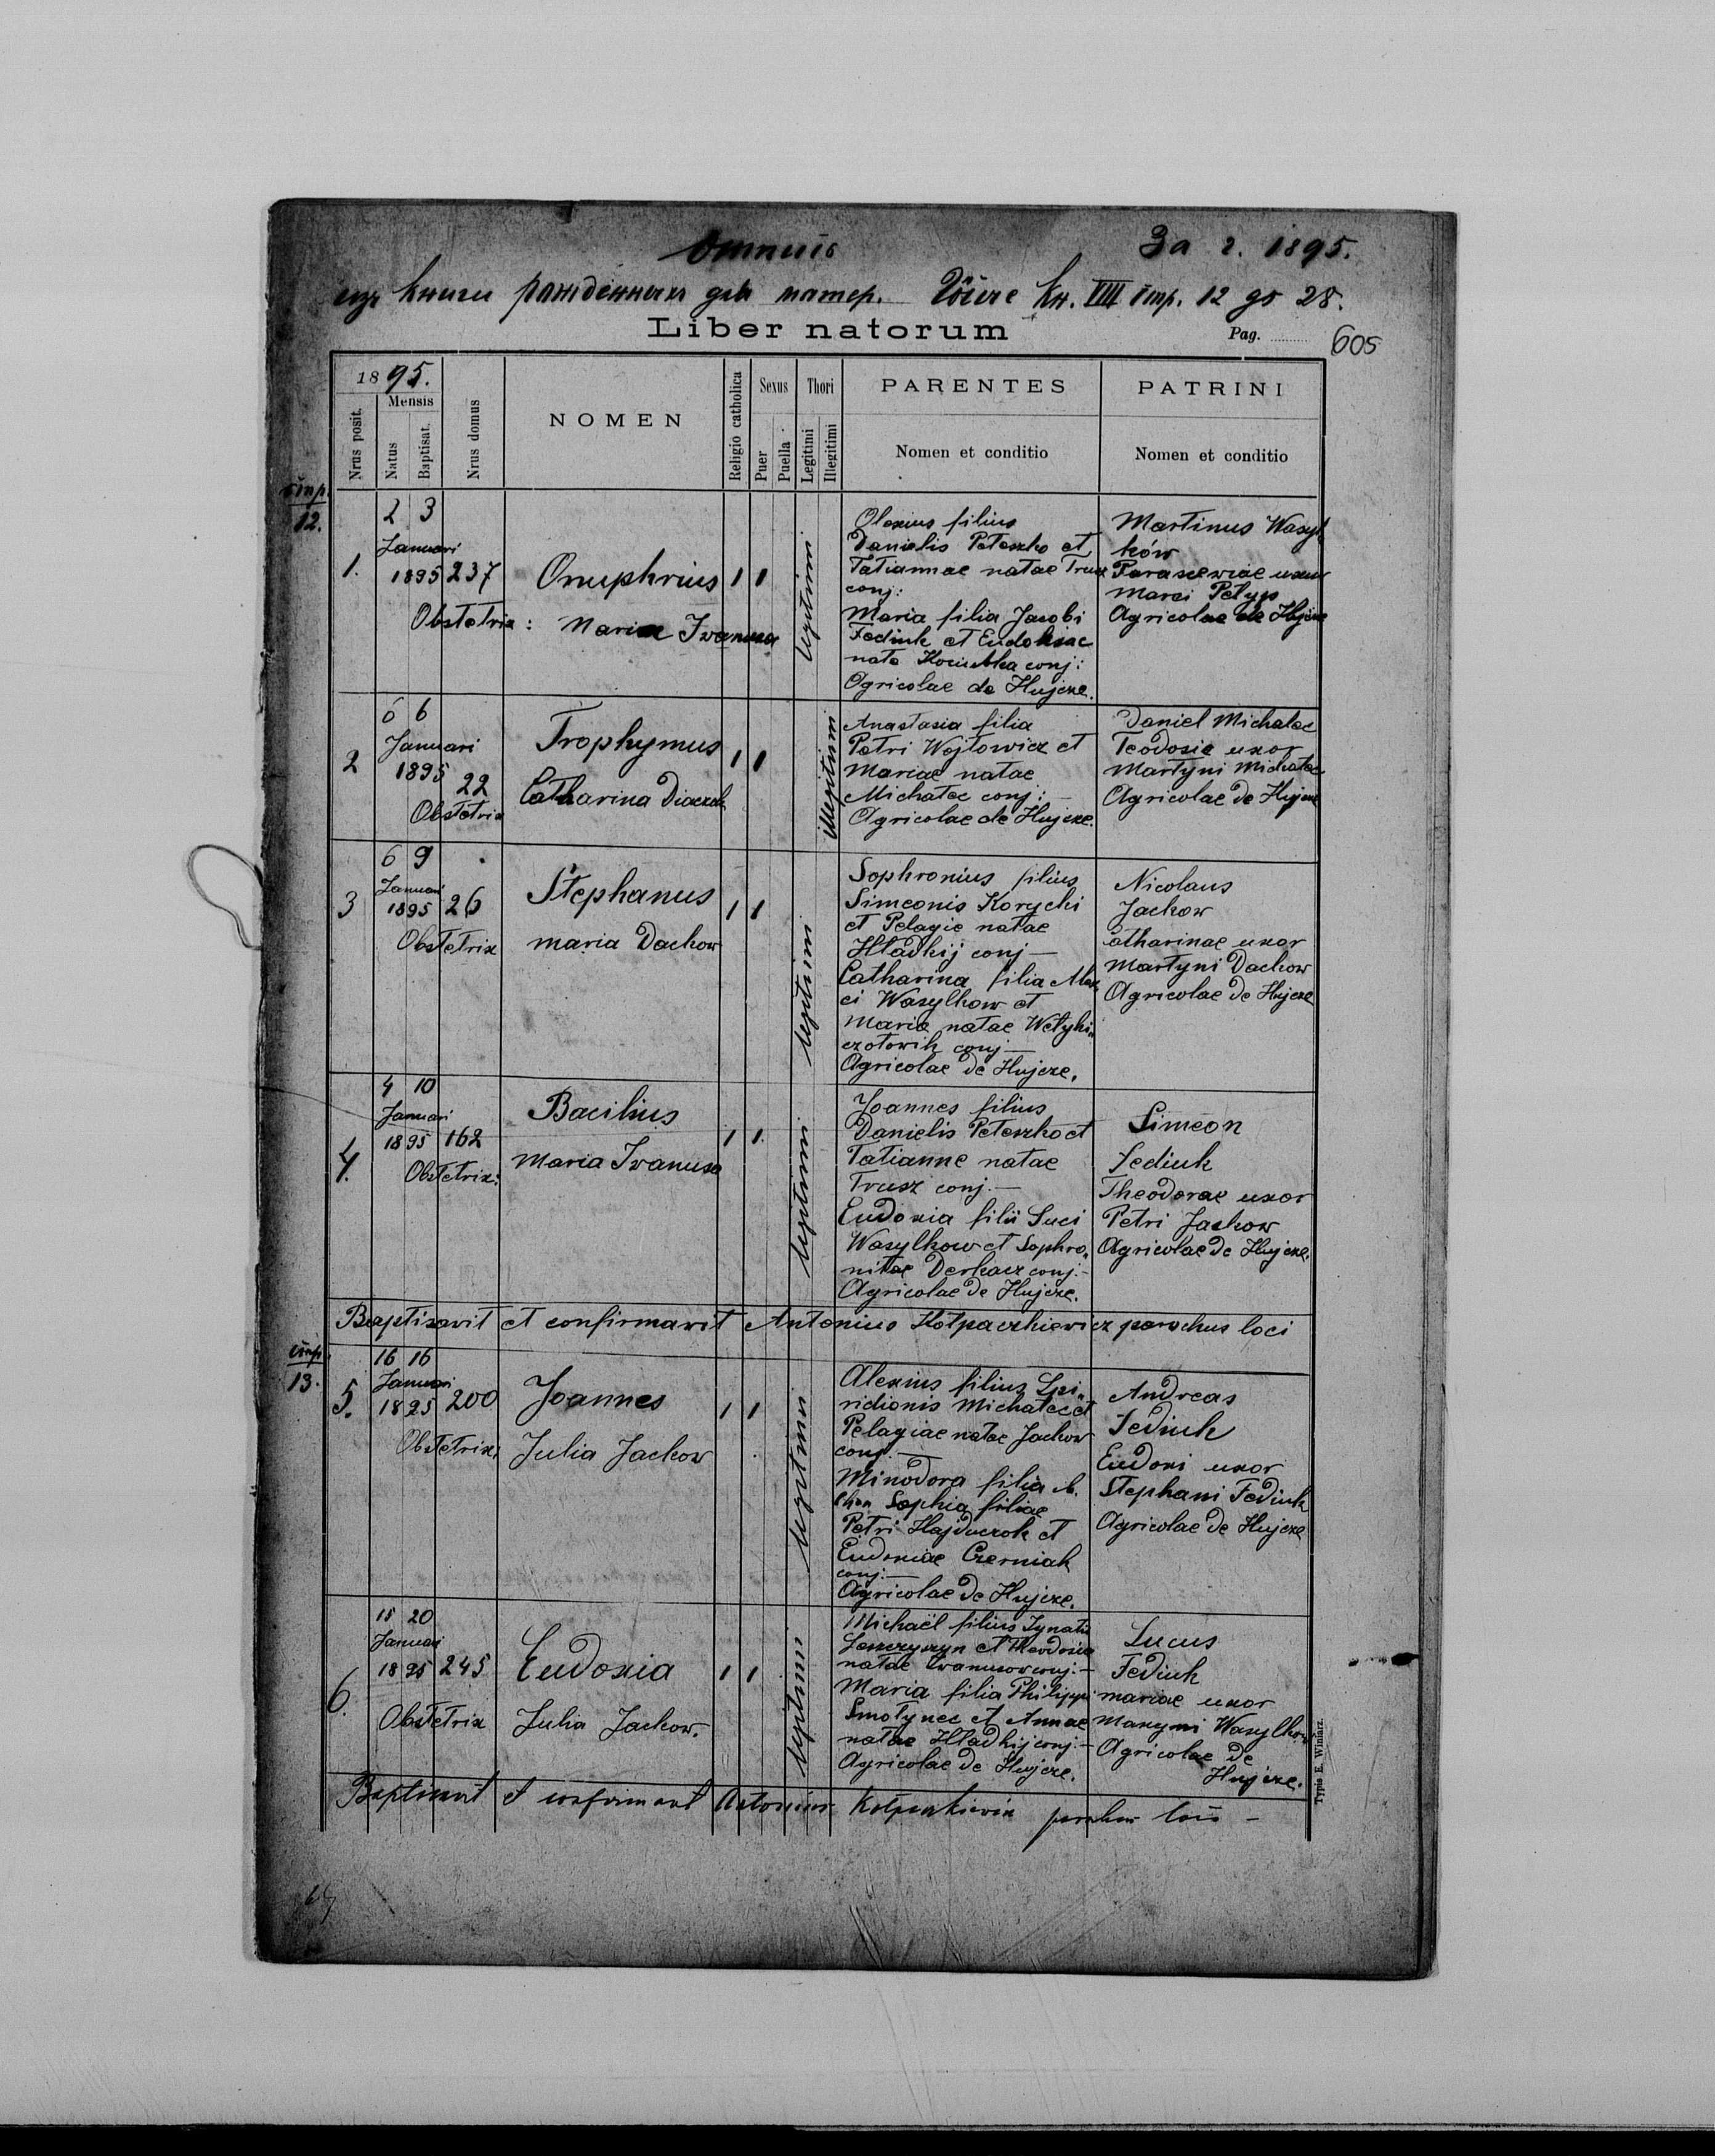 За г. 1895.
12 до 28.
Liber natorum
Pag.
605
1895.
Mensis
Nrus posit.
Natus
Baptisat.
Nrus domus
NOMEN
Religio catholica
Sexus
Puer
Puella
Thori
Legitimi
Illegitimi
PARENTES
Nomen et conditio
PATRINI
Nomen et conditio
12.
1.
2 3
Januari
1895 237
Onuphrius 1 1
Obstetrix: Maria Iwanusa
legitimi
Olexius filius
Danielis Peteszko et
Tatiannae natae Trusz
conj:
Maria filia Jacobi
Fediuk et
nata conj:
Agricolae de Hujcze.
Martinus Wasyl
ków
Parascewiae uxor
Marci Petyp
Agricolae de Hujcze
2
6 6
Januari
1895
22
Obstetrix
Trophymus 1 1
Catharina Diaczok
illegitimi
Anastasia filia
Petri Wojtowicz et
Mariae natae
Michalec conj:
Agricolae de Hujcze.
Daniel Michalec
Teodosie uxor
Martyni Michalec
Agricolae de Hujcze
3
6 9
Januari
1895 26
Obstetrix
Stephanus 1 1
Maria Dackow
legitimi
Sophronius filius
Simeonis Korycki
et Pelagie natae
Hładkij conj —
Catharina filia Alex
ei Wasylkow et
Maria natae Wetyki„
czołowik conj —
Agricolae de Hujcze.
Nicolaus
Jackow
Catharinae uxor
Martyni Dackow
Agricolae de Hujcze
4.
4 10
Januari
1895 162
Obstetrix:
Bacilius 1 1.
Maria Iwanusa
legitimi
Joannes filius
Danielis Peteszko et
Tatianne natae
Trusz conj. —
Eudoxia filii Luci
Wasylkow et Sophro„
nitae Derkacz conj. —
Agricolae de Hujcze.
Simeon
Fediuk
Theodorae uxor
Petri Jackow
Agricolae de Hujcze.
Baptisavit et confirmavit Antonius Kołpaczkiewicz parochus loci
13.
5.
16 16
Januari
1895 200
Obstetrix,
Joannes 1 1
Julia Jackow
legitimi
Alexius filius Spi„
ridionis Michalec et
Pelagiae natae Jackow
conj. —
Minodora filia
Sophia filiae
Petri Hajduczok et
Eudoxiae Czerniak
conj: —
Agricolae de Hujcze.
Andreas
Fediuk
Eudoxi uxor
Stephani Fediuk
Agricolae de Hujcze
6.
15 20
Januari
1895 245
Obstetrix
Eudoxia 1 1
Julia Jackow.
legitimi
Michaël filius Ignatii
et Theodosia
natae conj. —
Maria filia Philippi
Smotynec et Annae
natae Hładkij conj. —
Agricolae de Hujcze.
Lucus
Fediuk
Mariae uxor
Maxymi Wasylkow
Agricolae de
Hujcze.
Baptisavit et confirmavit Antonius Kołpaczkiewicz parochus loci —
Typis E. Winiarz.